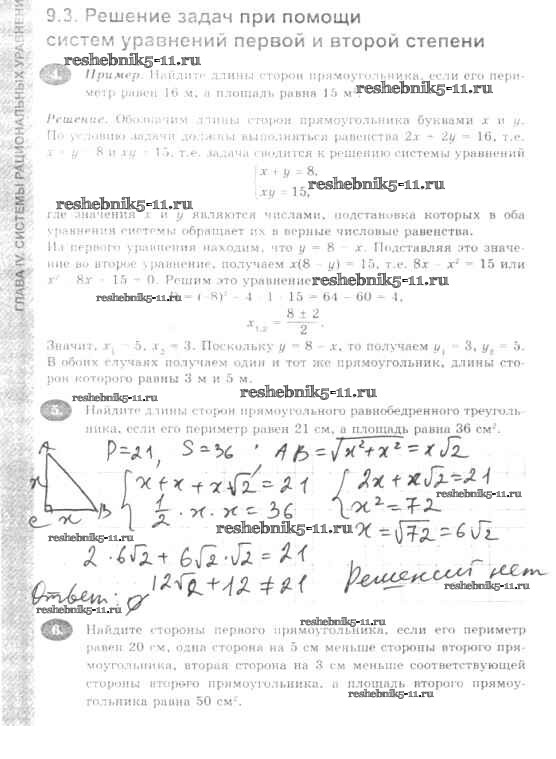 9.3. Решение задач при помощи
систем уравнений первой и второй степени
reshebnik5-11.ru
4. Пример. Найдите длины сторон прямоугольника, если его пери-
метр равен 16 м, а площадь равна 15 м².
Решение. Обозначим длины сторон прямоугольника буквами x и y.
По условию задачи должны выполняться равенства 2x + 2y = 16, т.е.
x + y = 8 и xy = 15, т.е. задача сводится к решению системы уравнений
x + y = 8,
reshebnik5-11.ru
xy = 15,
reshebnik5-11.ru
где значения x и y являются числами, подстановка которых в оба
уравнения системы обращает их в верные числовые равенства.
Из первого уравнения находим, что y = 8 − x. Подставляя это значе-
ние во второе уравнение, получаем x(8 − y) = 15, т.е. 8x − x² = 15 или
x² − 8x + 15 = 0. Решим это уравнение
reshebnik5-11.ru
reshebnik5-11.ru
= (−8)² − 4 · 1 · 15 = 64 − 60 = 4,
x₁,₂ = (8 ± 2)/2.
Значит, x₁ = 5, x₂ = 3. Поскольку y = 8 − x, то получаем y₁ = 3, y₂ = 5.
В обоих случаях получаем один и тот же прямоугольник, длины сто-
рон которого равны 3 м и 5 м.
reshebnik5-11.ru
5. Найдите длины сторон прямоугольного равнобедренного треуголь-
ника, если его периметр равен 21 см, а площадь равна 36 см².
reshebnik5-11.ru
A
P=21, S=36 AB=√x²+x²=x√2
x
x+x+x√2=21
2x+x√2=21
reshebnik5-11.ru
1/2·x·x=36
x²=72
C x B
reshebnik5-11.ru
x=√72=6√2
reshebnik5-11.ru
2·6√2+6√2·√2=21
12√2+12≠21
Решений нет
Ответ: ∅
reshebnik5-11.ru
reshebnik5-11.ru
reshebnik5-11.ru
6. Найдите стороны первого прямоугольника, если его периметр
равен 20 см, одна сторона на 5 см меньше стороны второго пря-
моугольника, вторая сторона на 3 см меньше соответствующей
стороны второго прямоугольника, а площадь второго прямоу-
reshebnik5-11.ru
гольника равна 50 см².
ГЛАВА IV. СИСТЕМЫ РАЦИОНАЛЬНЫХ УРАВНЕНИ